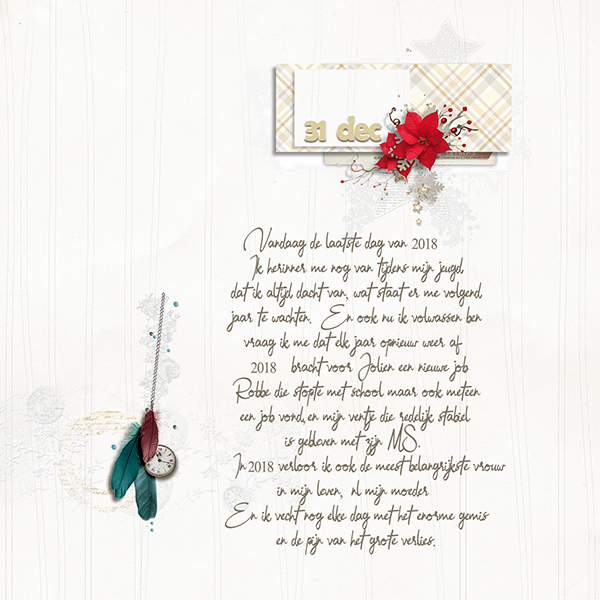 31 dec
Vandaag de laatste dag van 2018
Ik herinner me nog van tijdens mijn jeugd,
dat ik altijd dacht van, wat staat er me volgend
jaar te wachten. En ook nu ik volwassen ben
vraag ik me dat elk jaar opnieuw weer af
2018 bracht voor Jolien een nieuwe job
Robbe die stopte met school maar ook meteen
een job vond, en mijn ventje die redelijk stabiel
is gebleven met zijn MS.
In 2018 verloor ik ook de meest belangrijkste vrouw
in mijn leven, nl mijn moeder
En ik vecht nog elke dag met het enorme gemis
en de pijn van het grote verlies.